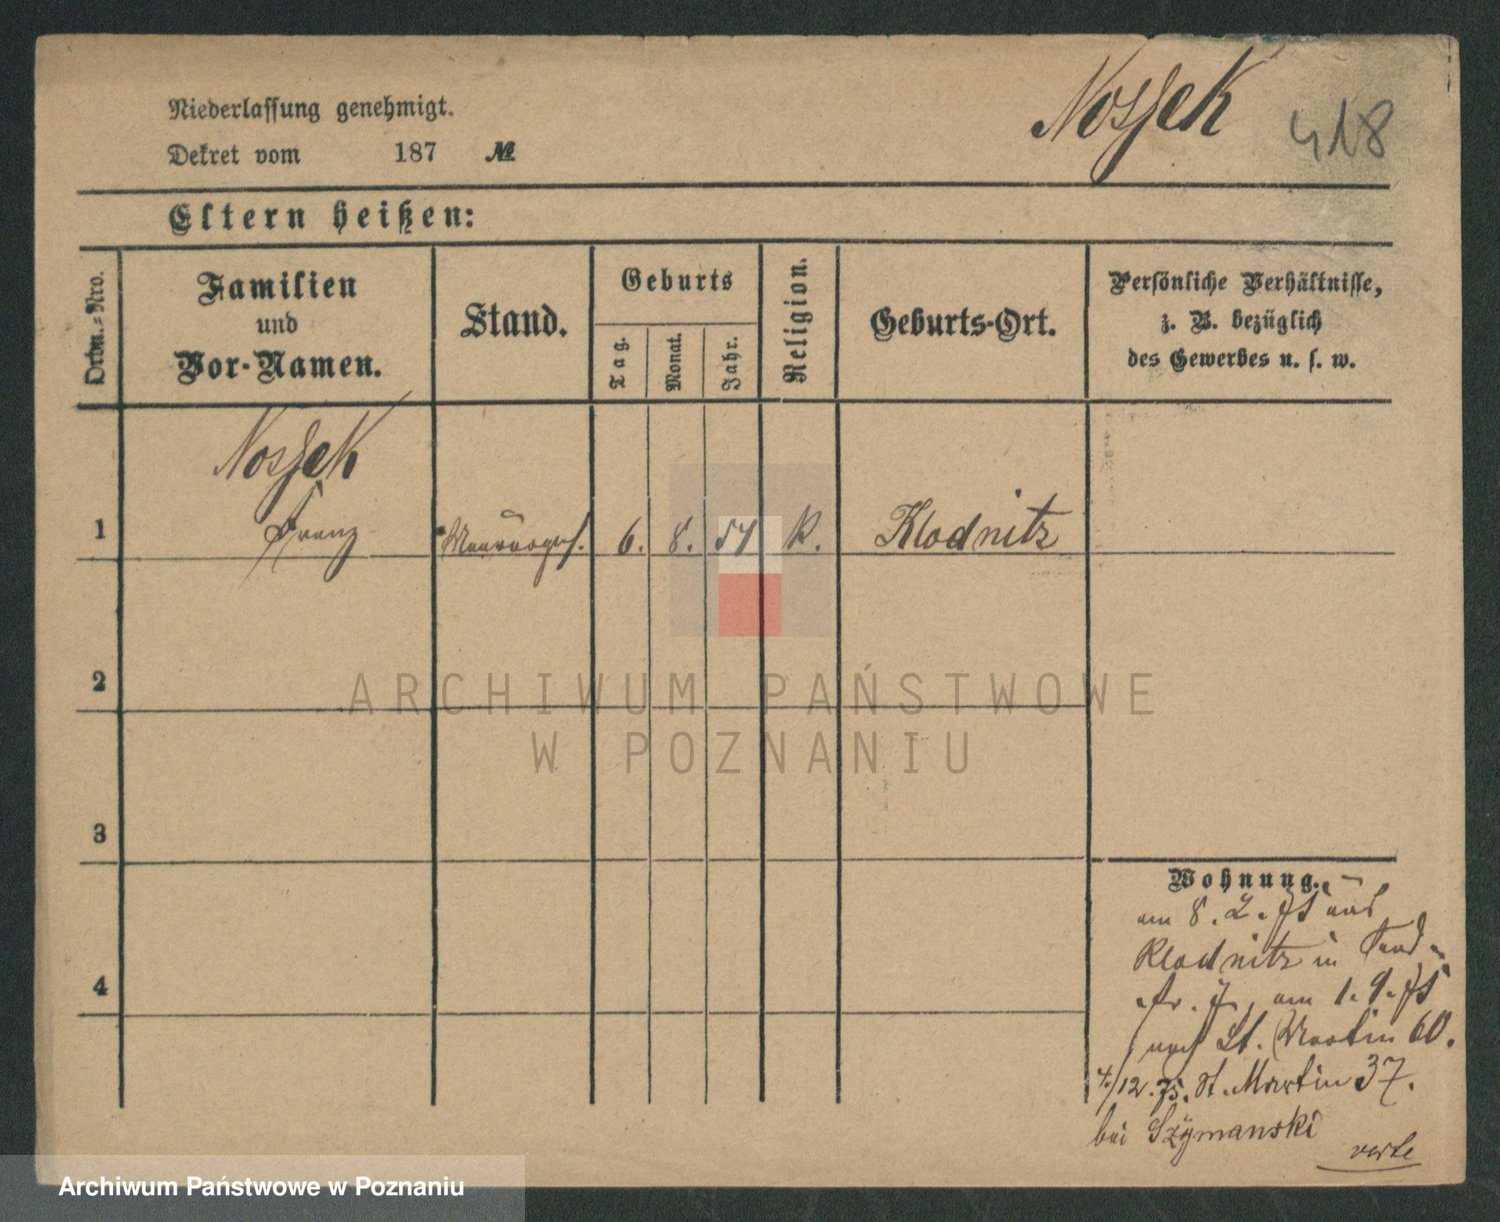 Nossek 418
Niederlassung genehmigt.
Dekret vom 187 №
Eltern heißen:
Ordn.-Nro.
Familien
und
Vor-Namen.
Stand.
Geburts
Tag.
Monat.
Jahr.
Religion.
Geburts-Ort.
Persönliche Verhältnisse,
z. B. bezüglich
des Gewerbes u. s. w.
Nossek
1 Franz Maurerges. 6. 8. 54 K. Klodnitz
2
3
4
Wohnung.
am 8. 2. 75 aus
Klodnitz in
am 1. 9. 75
nach St. Martin 60.
4/12. 75. St. Martin 37.
bei Szymanski
verte
ARCHIWUM PAŃSTWOWE
W POZNANIU
Archiwum Państwowe w Poznaniu